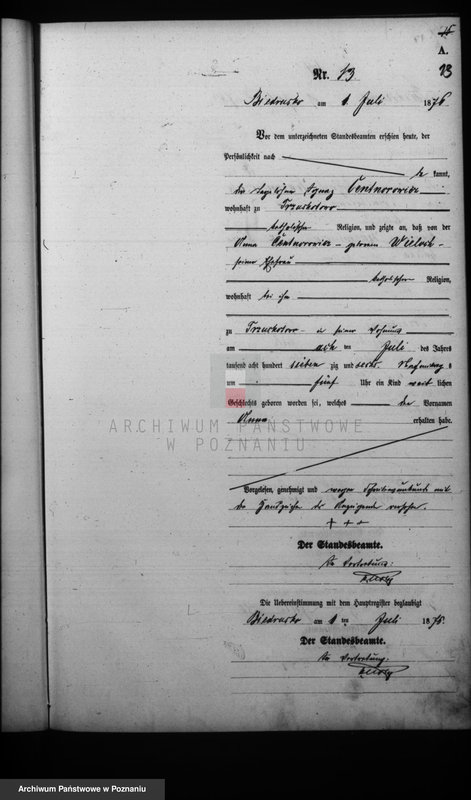 A.
13
Nr. 13
Biedrusko am 1 Juli 1876
Vor dem unterzeichneten Standesbeamten erschien heute, der
Persönlichkeit nach
be kannt,
der Tagelöhner Ignaz Centnorowicz
wohnhaft zu
katholischer Religion, und zeigte an, daß von der
Anna Centnorowicz geborenen
seiner Ehefrau
katholischer Religion,
wohnhaft bei ihm
zu in seiner Wohnung
am ten Juli des Jahres
tausend acht hundert sieben zig und sechs, Nachmittag s
um fünf Uhr ein Kind weib lichen
Geschlechts geboren worden sei, welches den Vornamen
Anna erhalten habe.
ARCHIWUM PAŃSTWOWE
W POZNANIU
Vorgelesen, genehmigt und wegen mit
dem Handzeichen des Anzeigenden versehen.
+ + +
Der Standesbeamte.
In Vertretung:
Die Uebereinstimmung mit dem Hauptregister beglaubigt
Biedrusko am 1 ten Juli 1876.
Der Standesbeamte.
In Vertretung.
Archiwum Państwowe w Poznaniu